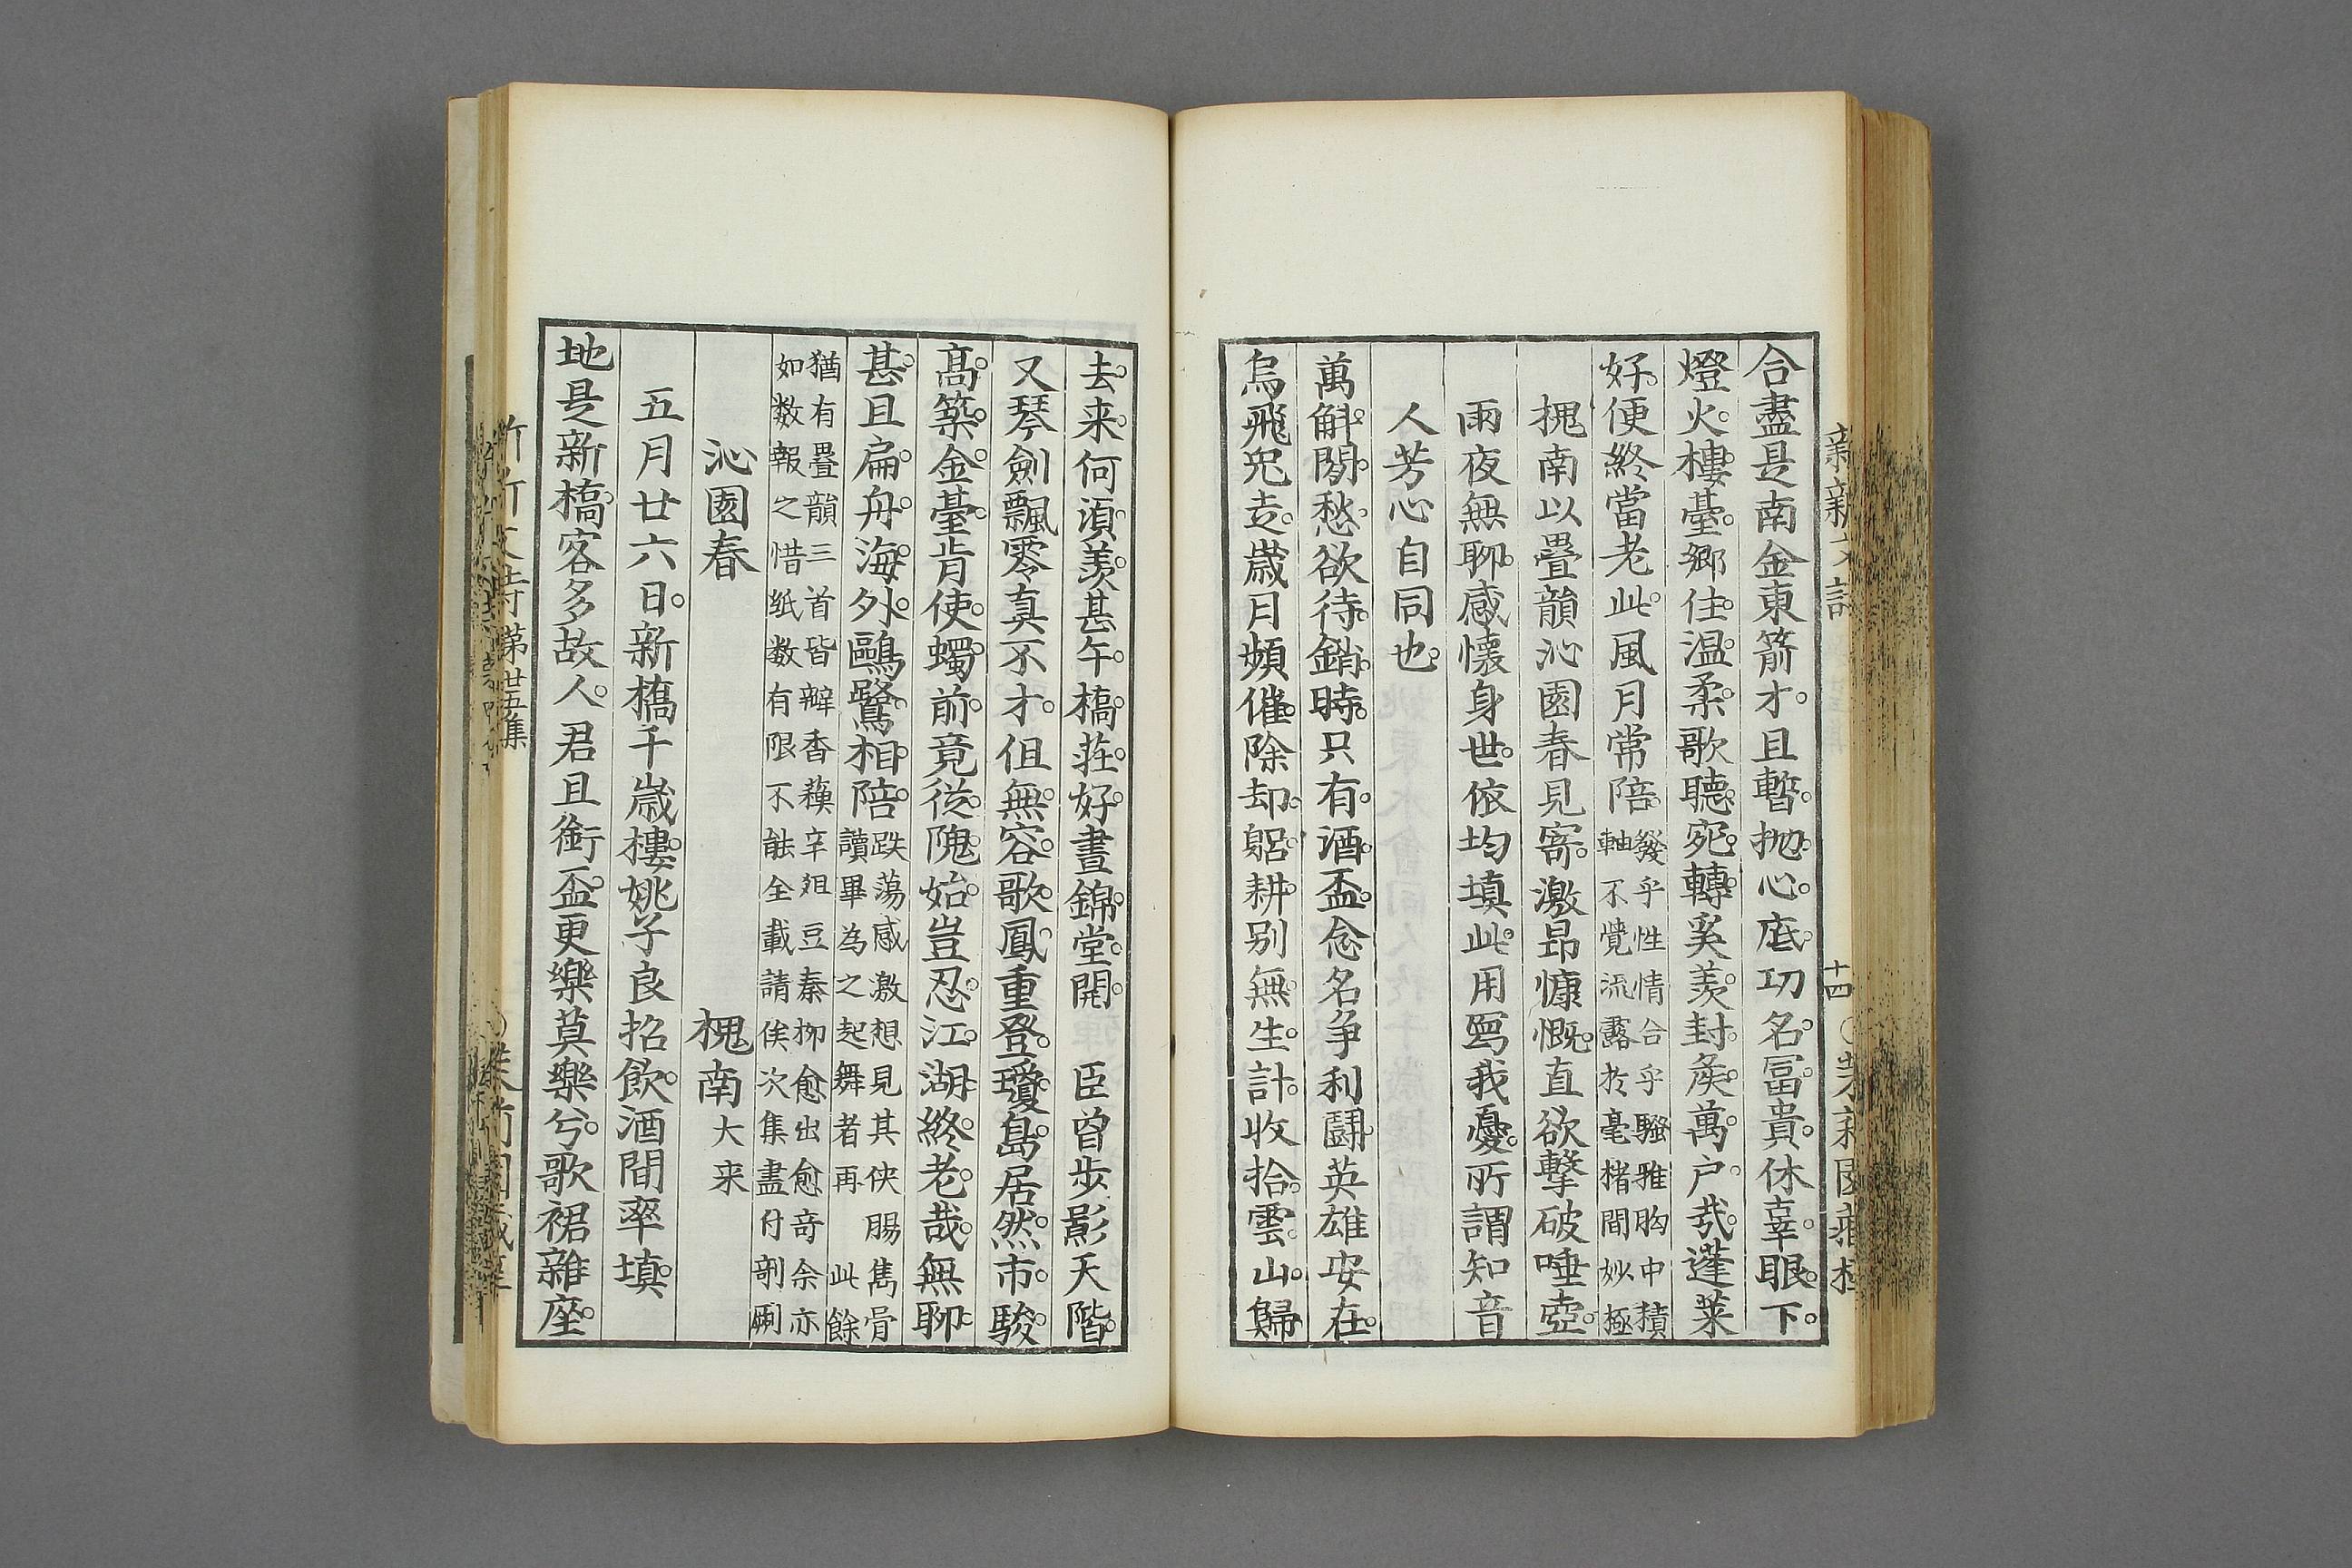 合盡是南金東箭才且暫抛心底功名冨貴休幸眼下
燈火樓臺鄉住温柔歌聽宛轉奚羨封矦萬户㢤蓬莱
好便終當老此風月常陪
發乎性情合乎騷雅胸中積
軸不覺流露扵毫楮間妙極
槐南以疊韻沁園春見寄激昂慷慨直欲擊破唾壺
雨夜無聊感懷身世依均填此用寫我憂所謂知音
人芳心自同也
萬斛閒愁欲待銷時只有酒盃念名争利鬪英雄安在
烏飛兎走歳月頻催除却躬耕别無生計收拾雲山歸
去来何湏羨甚午橋莊好晝錦堂開　臣曾步影天階
又琴劍飄零真不才但無容歌鳳重登瓊島居然市駿
髙築金臺肯使蠋前竟從隗始豈忍江湖終老哉無聊
甚且扁舟海外鷗鷺相陪
跌蕩感激想見其侠腸雋骨
讀畢為之起舞者再　此餘
猶有疊韻三首皆辦香蘓辛俎豆秦柳愈出愈奇余亦
如数報之惜纸数有限不能全載請俟次集盡付剞劂
沁園春　槐南大来
五月廿六日新橋千歳樓姚子良招飲酒間率填
地是新橋客多故人君且銜盃更樂莫樂兮歌裙雜座
十四
第廿五集